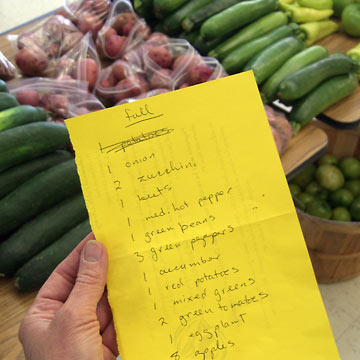 fall
1 potatoes
1 onion
2 zucchini
1 beets
1 med. hot pepper
1 green beans "
3 green peppers
1 cucumber
1 red potatoes
1 mixed greens
2 green tomatoes
1 eggplant
8 apples